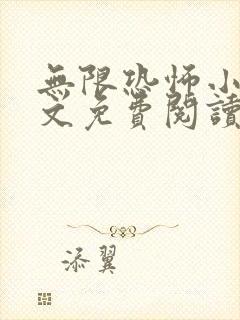 無限恐怖小
文免費閱讀
添翼